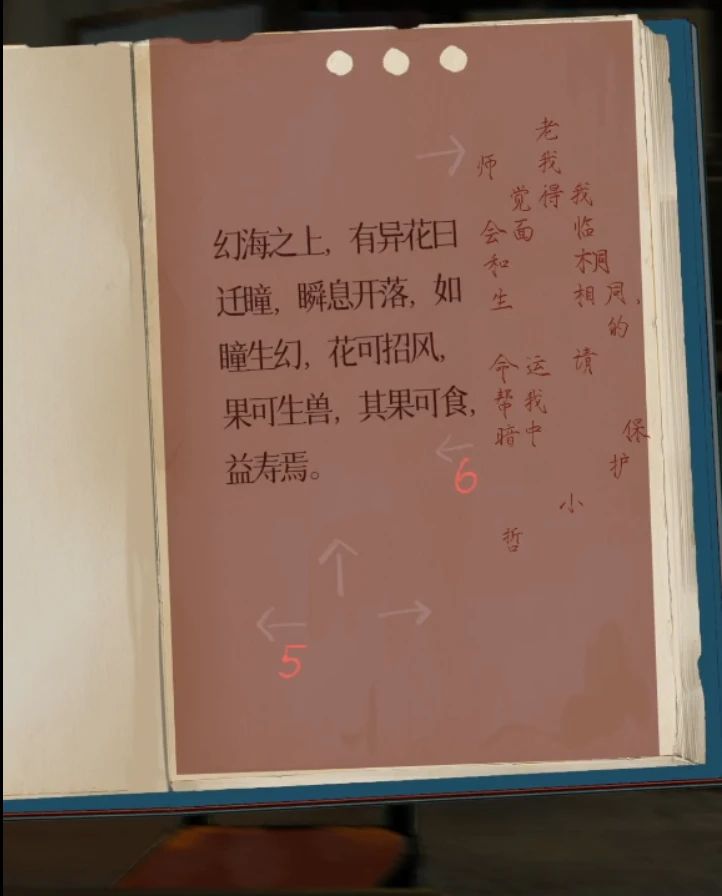 幻海之上，有异花曰
迁瞳，瞬息开落，如
瞳生幻，花可招风，
果可生兽，其果可食，
益寿焉。
老
师 我
觉 得 我
会 面 临
和 桐
生 相 同，
的
命 运 请
帮 我
暗 中 保
护
小
哲
6
5